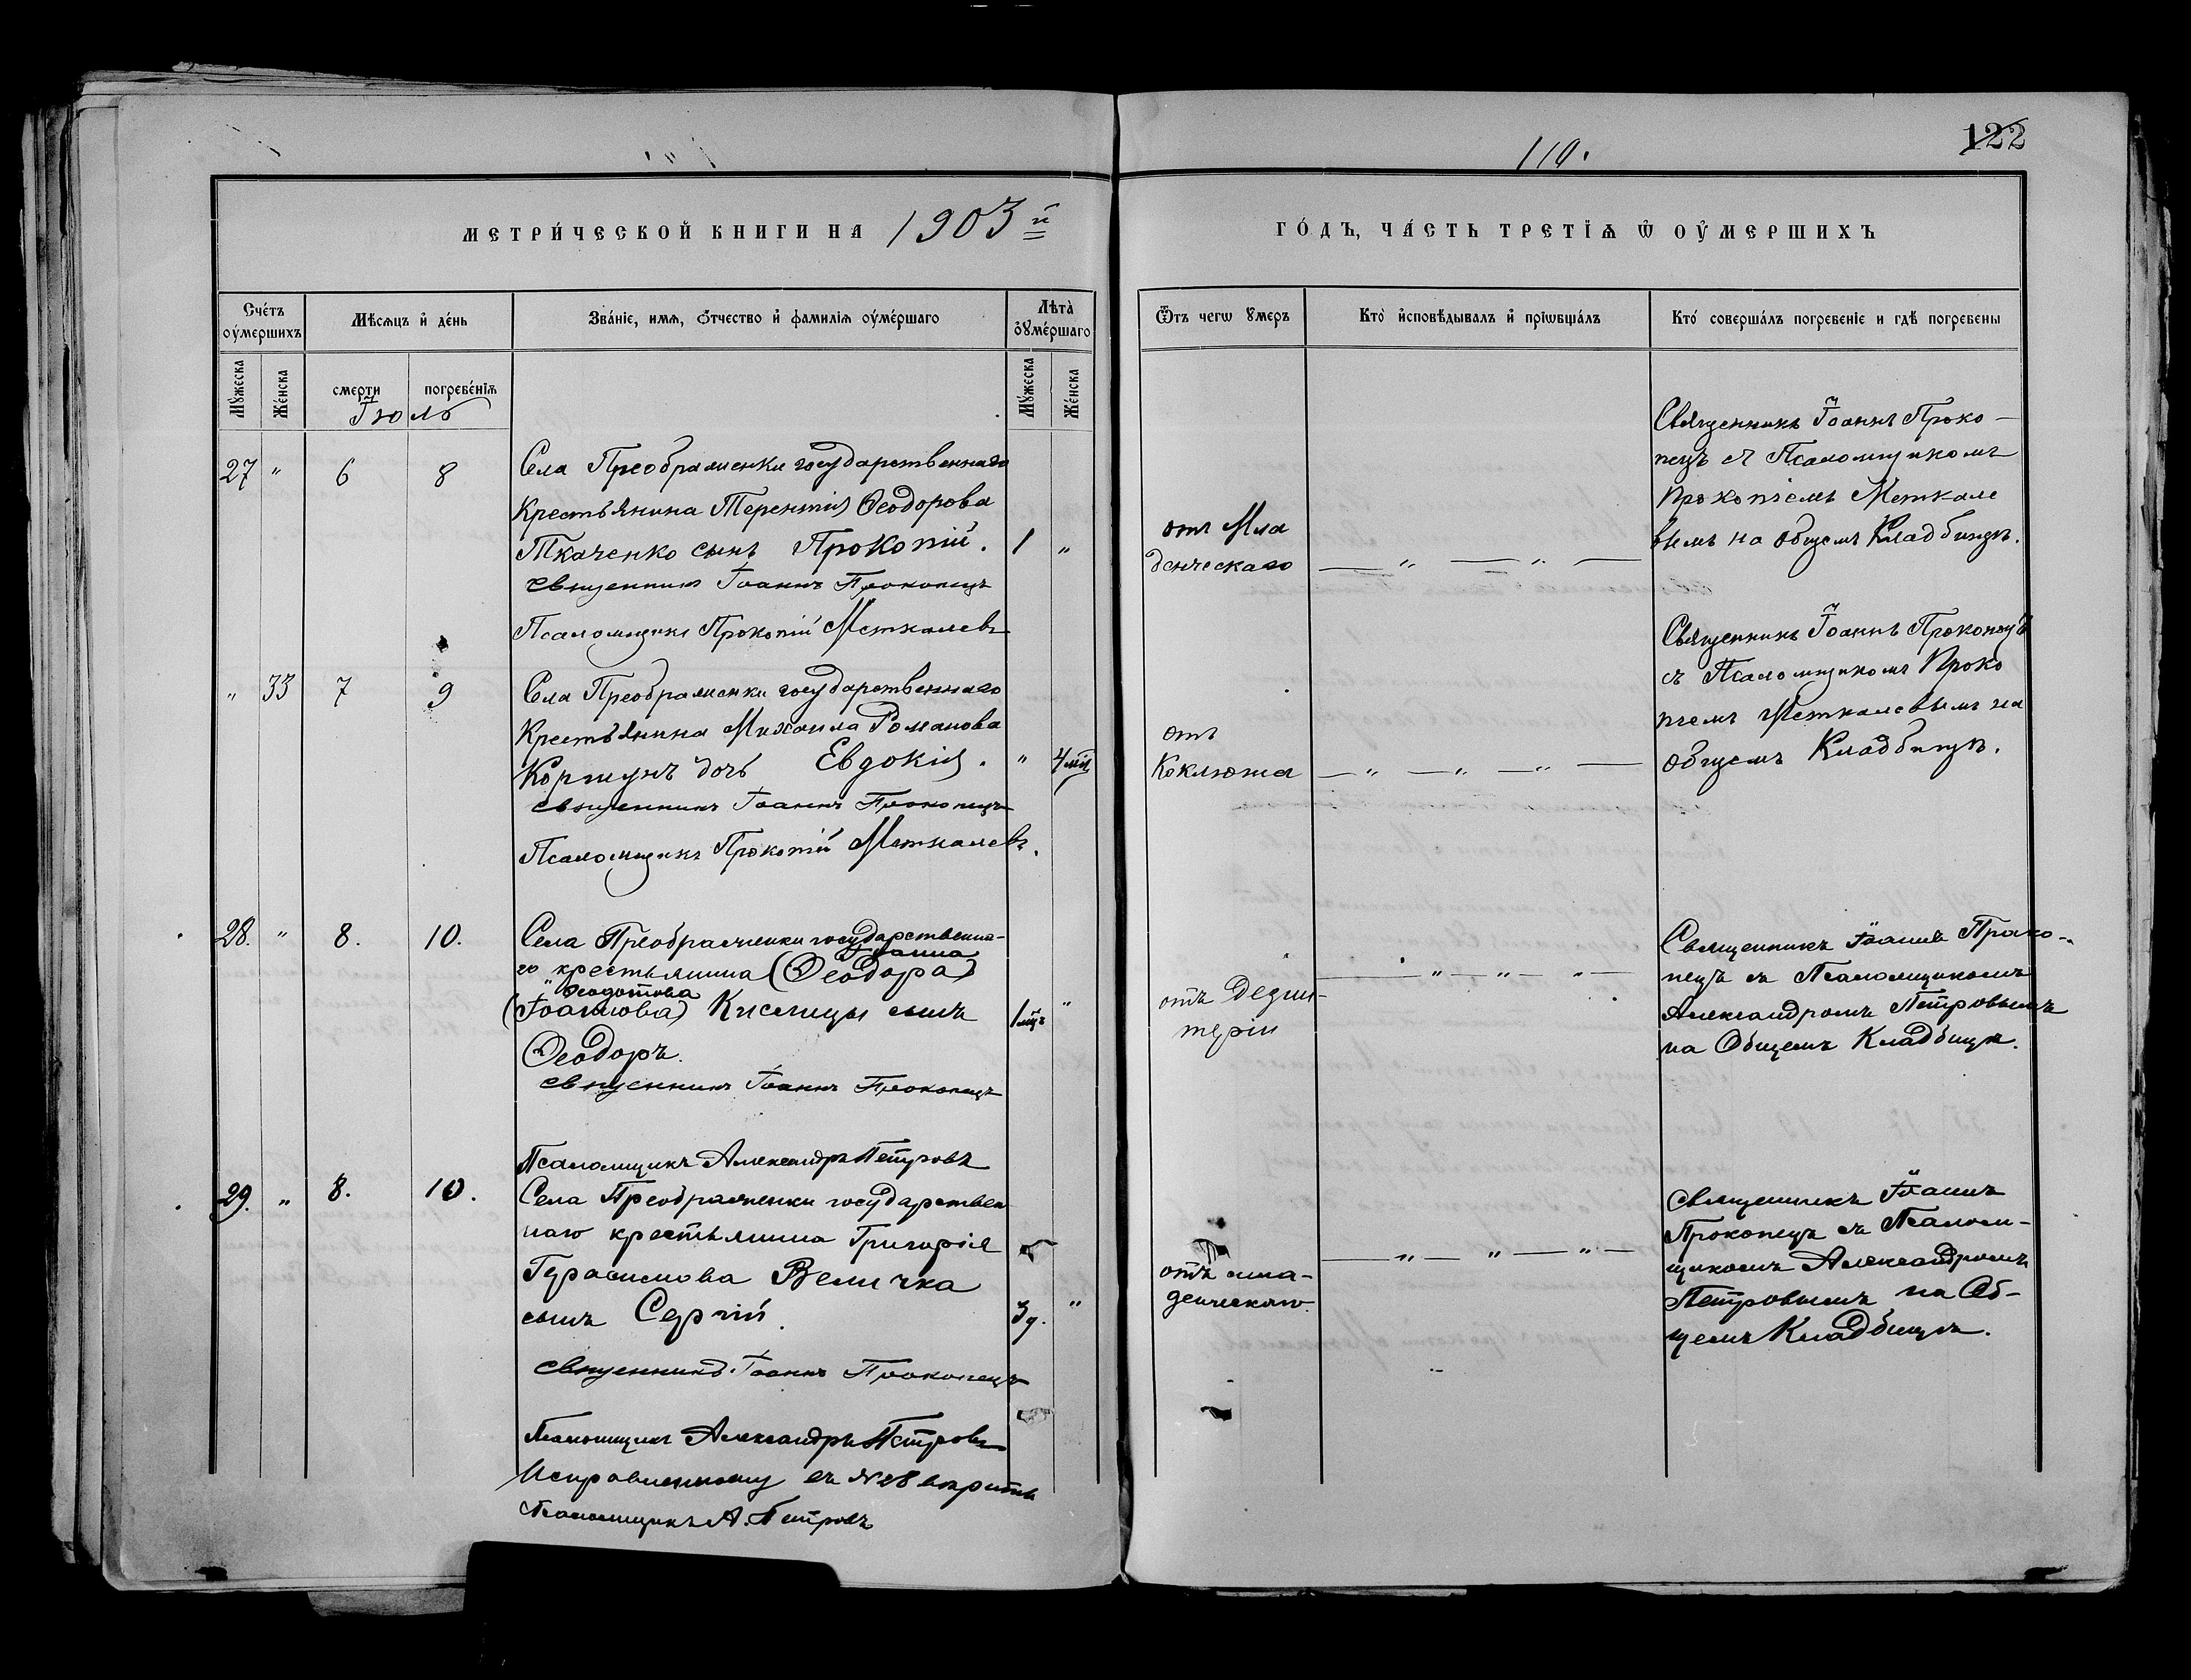 110.
122
МЕТРИ́ЧЕСКОЙ КНИГИ НА 1903й
ГО́ДЪ, ЧА́СТЬ ТРЕТІѦ Ѿ ОУ҆МЕРШИХЪ
Сче́тъ оу҆ме́ршихъ
Мѣсѧцъ и҆ де́нь
Зва́нїе, имѧ, ѻ҆́тчество и҆ фамилїѧ оу҆ме́ршаго
Лѣта̀ оу҆ме́ршаго
Ѿтъ чегѡ ᲂумеръ
Кто̀ и҆сповѣ́дывалъ и҆ прїѡбща́лъ
Кто̀ соверша́лъ погребенїе и гдѣ̀ погребены
Мꙋ́жеска
Же́нска
смерти
погребе́нїѧ
Мꙋ́жеска
Же́нска
Іюль
27 " 6 8
Села Преображенки государственнаго
Крестьянина Терентія Ѳеодорова
Ткаченко сынъ Прокопій. 1 "
священникъ Іоаннъ Прокопецъ
Псаломщикъ Прокопій Меткалевъ
отъ Мла
денческаго
— " — " —
Священникъ Іоаннъ Проко-
пецъ съ Псаломщикомъ
Прокопіемъ Меткале
вымъ на общемъ Кладбищѣ.
" 33 7 9
Села Преображенки государственнаго
Крестьянина Михаила Романова
Коршунъ дочь Евдокія. " 4 мѣс
священникъ Іоаннъ Прокопецъ
Псаломщикъ Прокопій Меткалевъ.
отъ
Коклюша
— " — " — " —
Священникъ Іоаннъ Прокопецъ
съ Псаломщикомъ Проко
піемъ Меткалевымъ на
общемъ Кладбищѣ.
28. " 8. 10.
Села Преображенки государственна-
Іоанна
го крестьянина (Ѳеодора)
Ѳеодотова
(Іоаннова) Кислицы сынъ 1 мц. "
Ѳеодоръ.
священникъ Іоаннъ Прокопецъ
Псаломщикъ Александръ Петровъ
отъ Дезин-
теріи
— " — " — " —
Священникъ Іоаннъ Проко-
пецъ съ Псаломщикомъ
Александромъ Петровымъ
на Общемъ Кладбищѣ.
29. " 8. 10.
Села Преображенки государствен
наго крестьянина Григорія
Герасимова Величка
сынъ Сергій. 3 г. "
священникъ Іоаннъ Прокопецъ
Псаломщикъ Александръ Петровъ
отъ мла-
денческаго.
— " — " — " —
Священникъ Іоаннъ
Прокопецъ съ Псалом-
щикомъ Александромъ
Петровымъ на Об-
щемъ Кладбищѣ.
Исправленному въ №28 вѣрить
Псаломщикъ А. Петровъ